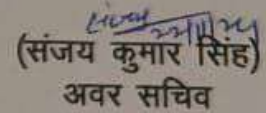 (संजय कुमार सिंह)
अवर सचिव